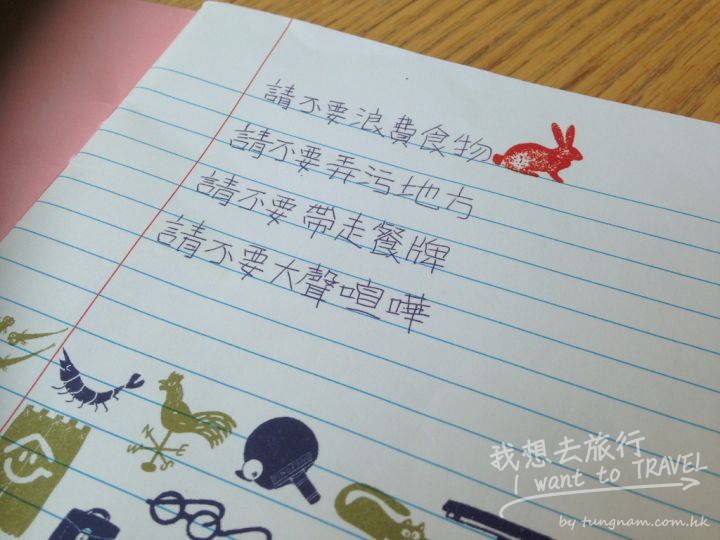 請不要浪費食物
請不要弄污地方
請不要帶走餐牌
請不要大聲喧嘩
我想去旅行
I want to TRAVEL
by tungnam.com.hk